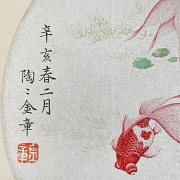 辛亥春二月
陶〻金章